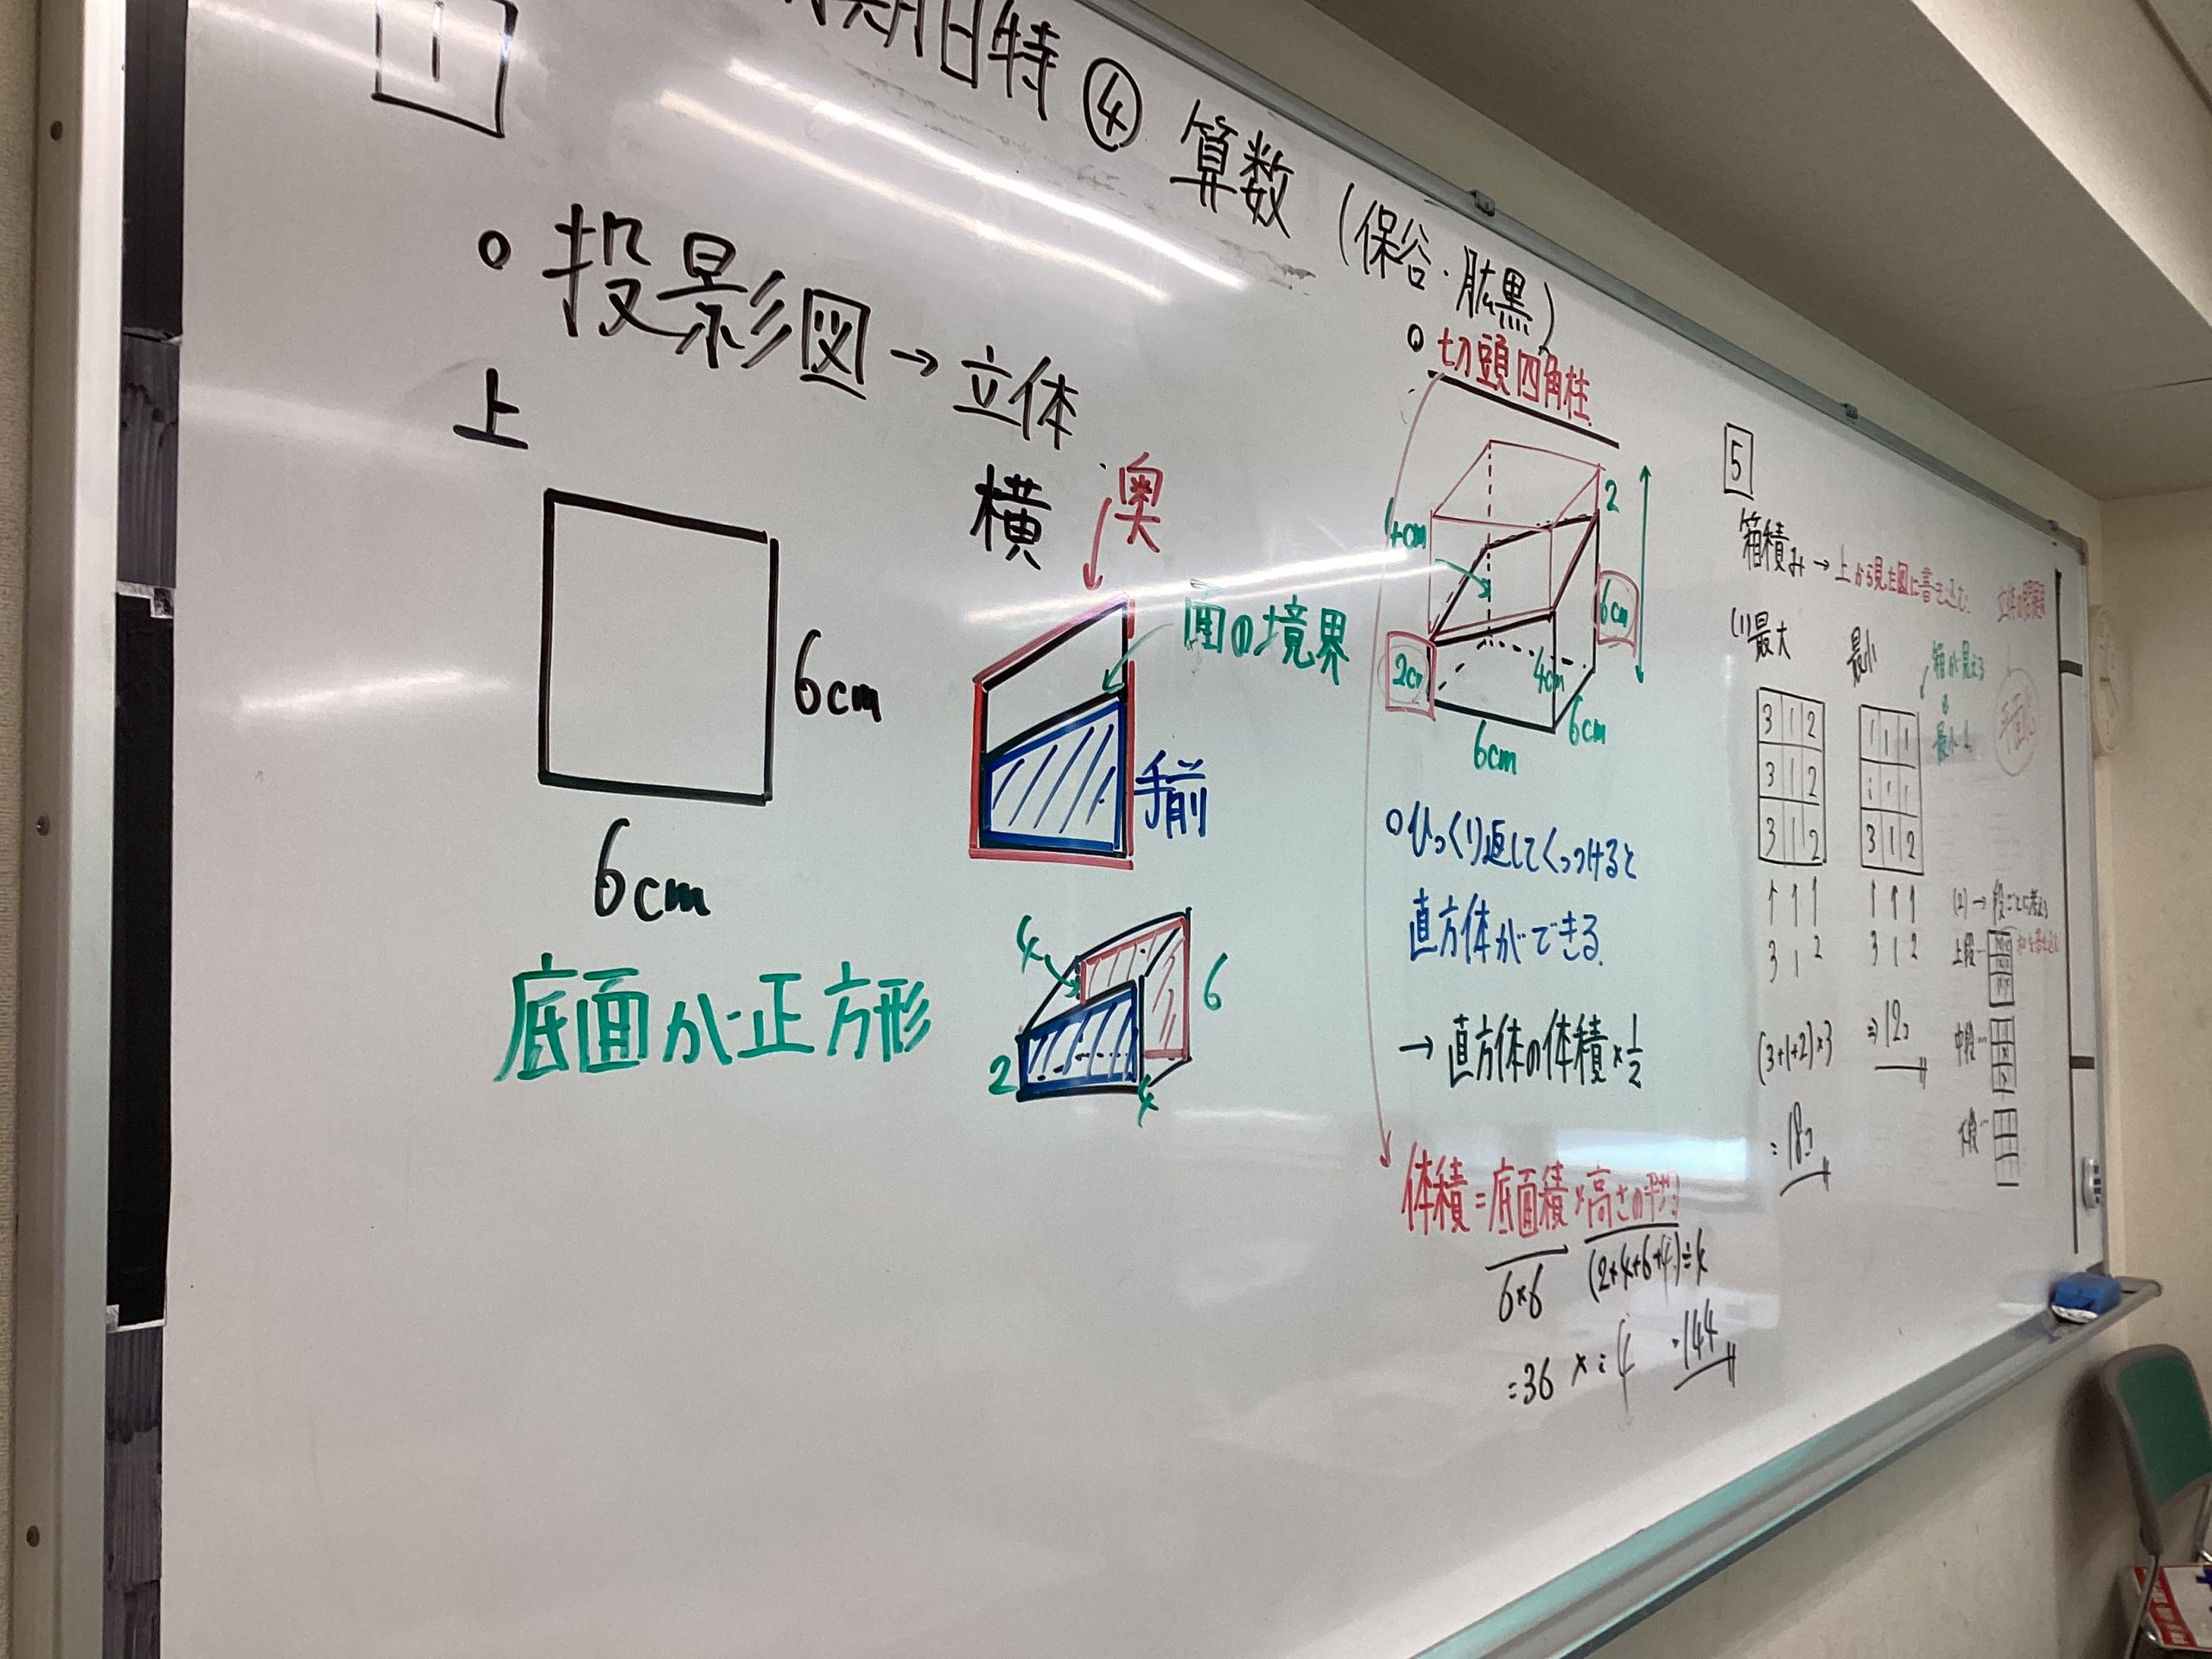 1
期日特 ④ 算数 (保谷・肱黒)
○ 投影図 → 立体
上
6cm
6cm
底面が正方形
横
奥
面の境界
手前
4
6
2
4
○ 切頭四角柱
2
4cm
6cm
2cm
4cm
6cm
6cm
○ ひっくり返してくっつけると
直方体ができる.
→ 直方体の体積 × 1/2
体積 = 底面積 × 高さの平均
6×6 (2+4+6+4)÷4
=36 × 4 =144
5
箱積み → 上から見た図に書き込む
(1) 最大
3 1 2
3 1 2
3 1 2
↑ ↑ ↑
3 1 2
(3+1+2)×3
=18コ
最小
1 1 1
1 1 1
3 1 2
↑ ↑ ↑
3 1 2
⇒ 12コ
箱が見える
(2) → 段ごとに考える
上段…
中段…
下段…